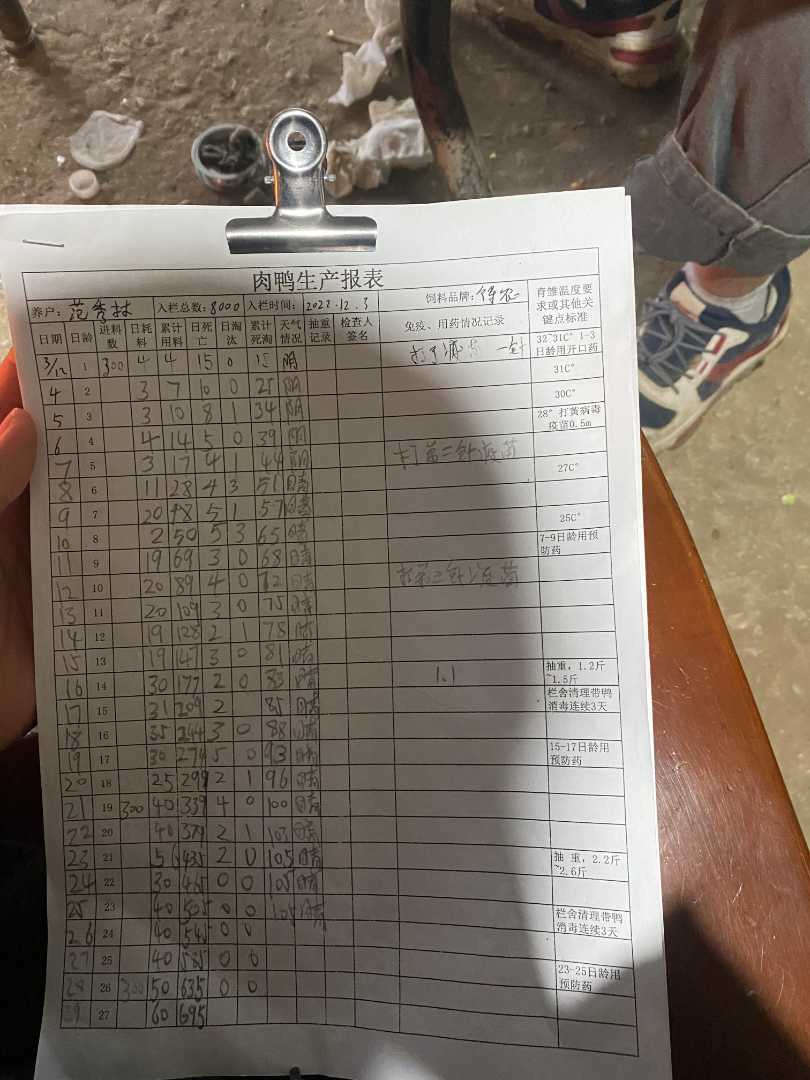 肉鸭生产报表
养户: 范秀林 入栏总数: 8000 入栏时间: 2022.12.3 饲料品牌:
日期 日龄 进料数 日耗料 累计用料 日死亡 日淘汰 累计死淘 天气情况 抽重记录 检查人签名 免疫、用药情况记录 育雏温度要求或其他关键点标准
3/12 1 300 4 4 15 0 15 阴 一针 32~31C° 1-3日龄用开口药
4 2 3 7 10 0 25 阴 31C°
5 3 3 10 8 1 34 阴 30C°
6 4 4 14 5 0 39 阴 28° 打黄病毒疫苗0.5m
7 5 3 17 4 1 44 阴 打第二针疫苗
8 6 11 28 4 3 51 晴 27C°
9 7 20 48 5 1 57 晴
10 8 2 50 5 3 65 晴 25C°
11 9 19 69 3 0 68 晴 7-9日龄用预防药
12 10 20 89 4 0 72 晴 打第三针疫苗
13 11 20 109 3 0 75 晴
14 12 19 128 2 1 78 晴
15 13 19 147 3 0 81 晴
16 14 30 177 2 0 83 晴 1.1 抽重，1.2斤~1.5斤
17 15 31 209 2 85 晴 栏舍清理带鸭消毒连续3天
18 16 35 244 3 0 88 晴
19 17 30 274 5 0 93 晴 15-17日龄用预防药
20 18 25 299 2 1 96 晴
21 19 300 40 339 4 0 100 晴
22 20 40 379 2 1 103 晴
23 21 56 435 2 0 105 晴 抽 重，2.2斤~2.6斤
24 22 30 465 0 0 105 晴
25 23 40 505 0 0 105 晴 栏舍清理带鸭消毒连续3天
26 24 40 545 0 0
27 25 40 585 0 0 23-25日龄用预防药
28 26 300 50 635 0 0
29 27 60 695